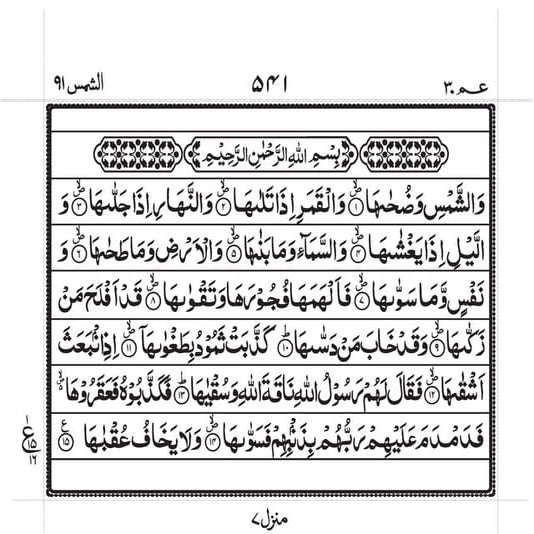 عـم ٣٠
٥٤١
الشمس ٩١
بِسْمِ اللهِ الرَّحْمٰنِ الرَّحِيْمِ
وَالشَّمْسِ وَضُحٰىهَا ۙ﴿۱﴾ وَالْقَمَرِ اِذَا تَلٰىهَا ۙ﴿۲﴾ وَالنَّهَارِ اِذَا جَلّٰىهَا ۙ﴿۳﴾ وَ
الَّيْلِ اِذَا يَغْشٰىهَا ۙ﴿۴﴾ وَالسَّمَآءِ وَمَا بَنٰىهَا ۙ﴿۵﴾ وَالْاَرْضِ وَمَا طَحٰىهَا ۙ﴿۶﴾ وَ
نَفْسٍ وَّمَا سَوّٰىهَا ۙ﴿۷﴾ فَاَلْهَمَهَا فُجُوْرَهَا وَتَقْوٰىهَا ۙ﴿۸﴾ قَدْ اَفْلَحَ مَنْ
زَكّٰىهَا ۙ﴿۹﴾ وَقَدْ خَابَ مَنْ دَسّٰىهَا ؕ﴿۱۰﴾ كَذَّبَتْ ثَمُوْدُ بِطَغْوٰىهَاۤ ۙ﴿۱۱﴾ اِذِ انْۢبَعَثَ
اَشْقٰىهَا ۙ﴿۱۲﴾ فَقَالَ لَهُمْ رَسُوْلُ اللهِ نَاقَةَ اللهِ وَسُقْيٰهَا ؕ﴿۱۳﴾ فَكَذَّبُوْهُ فَعَقَرُوْهَا ۙ
فَدَمْدَمَ عَلَيْهِمْ رَبُّهُمْ بِذَنْۢبِهِمْ فَسَوّٰىهَا ۙ﴿۱۴﴾ وَلَا يَخَافُ عُقْبٰهَا ﴿۱۵﴾ع
١
ع
١٥
١٦
منزل ٧